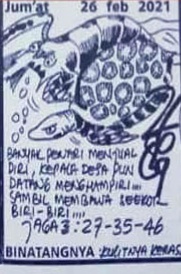 Jum'at 26 feb 2021
BANYAK PENARI MENJUAL
DIRI, KEPALA DESA PUN
DATANG MENGHAMPIRI....
SAMBIL MEMBAWA SEEKOR
BIRI-BIRI....
JAGA2 : 27-35-46
BINATANGNYA KULITNYA KERAS